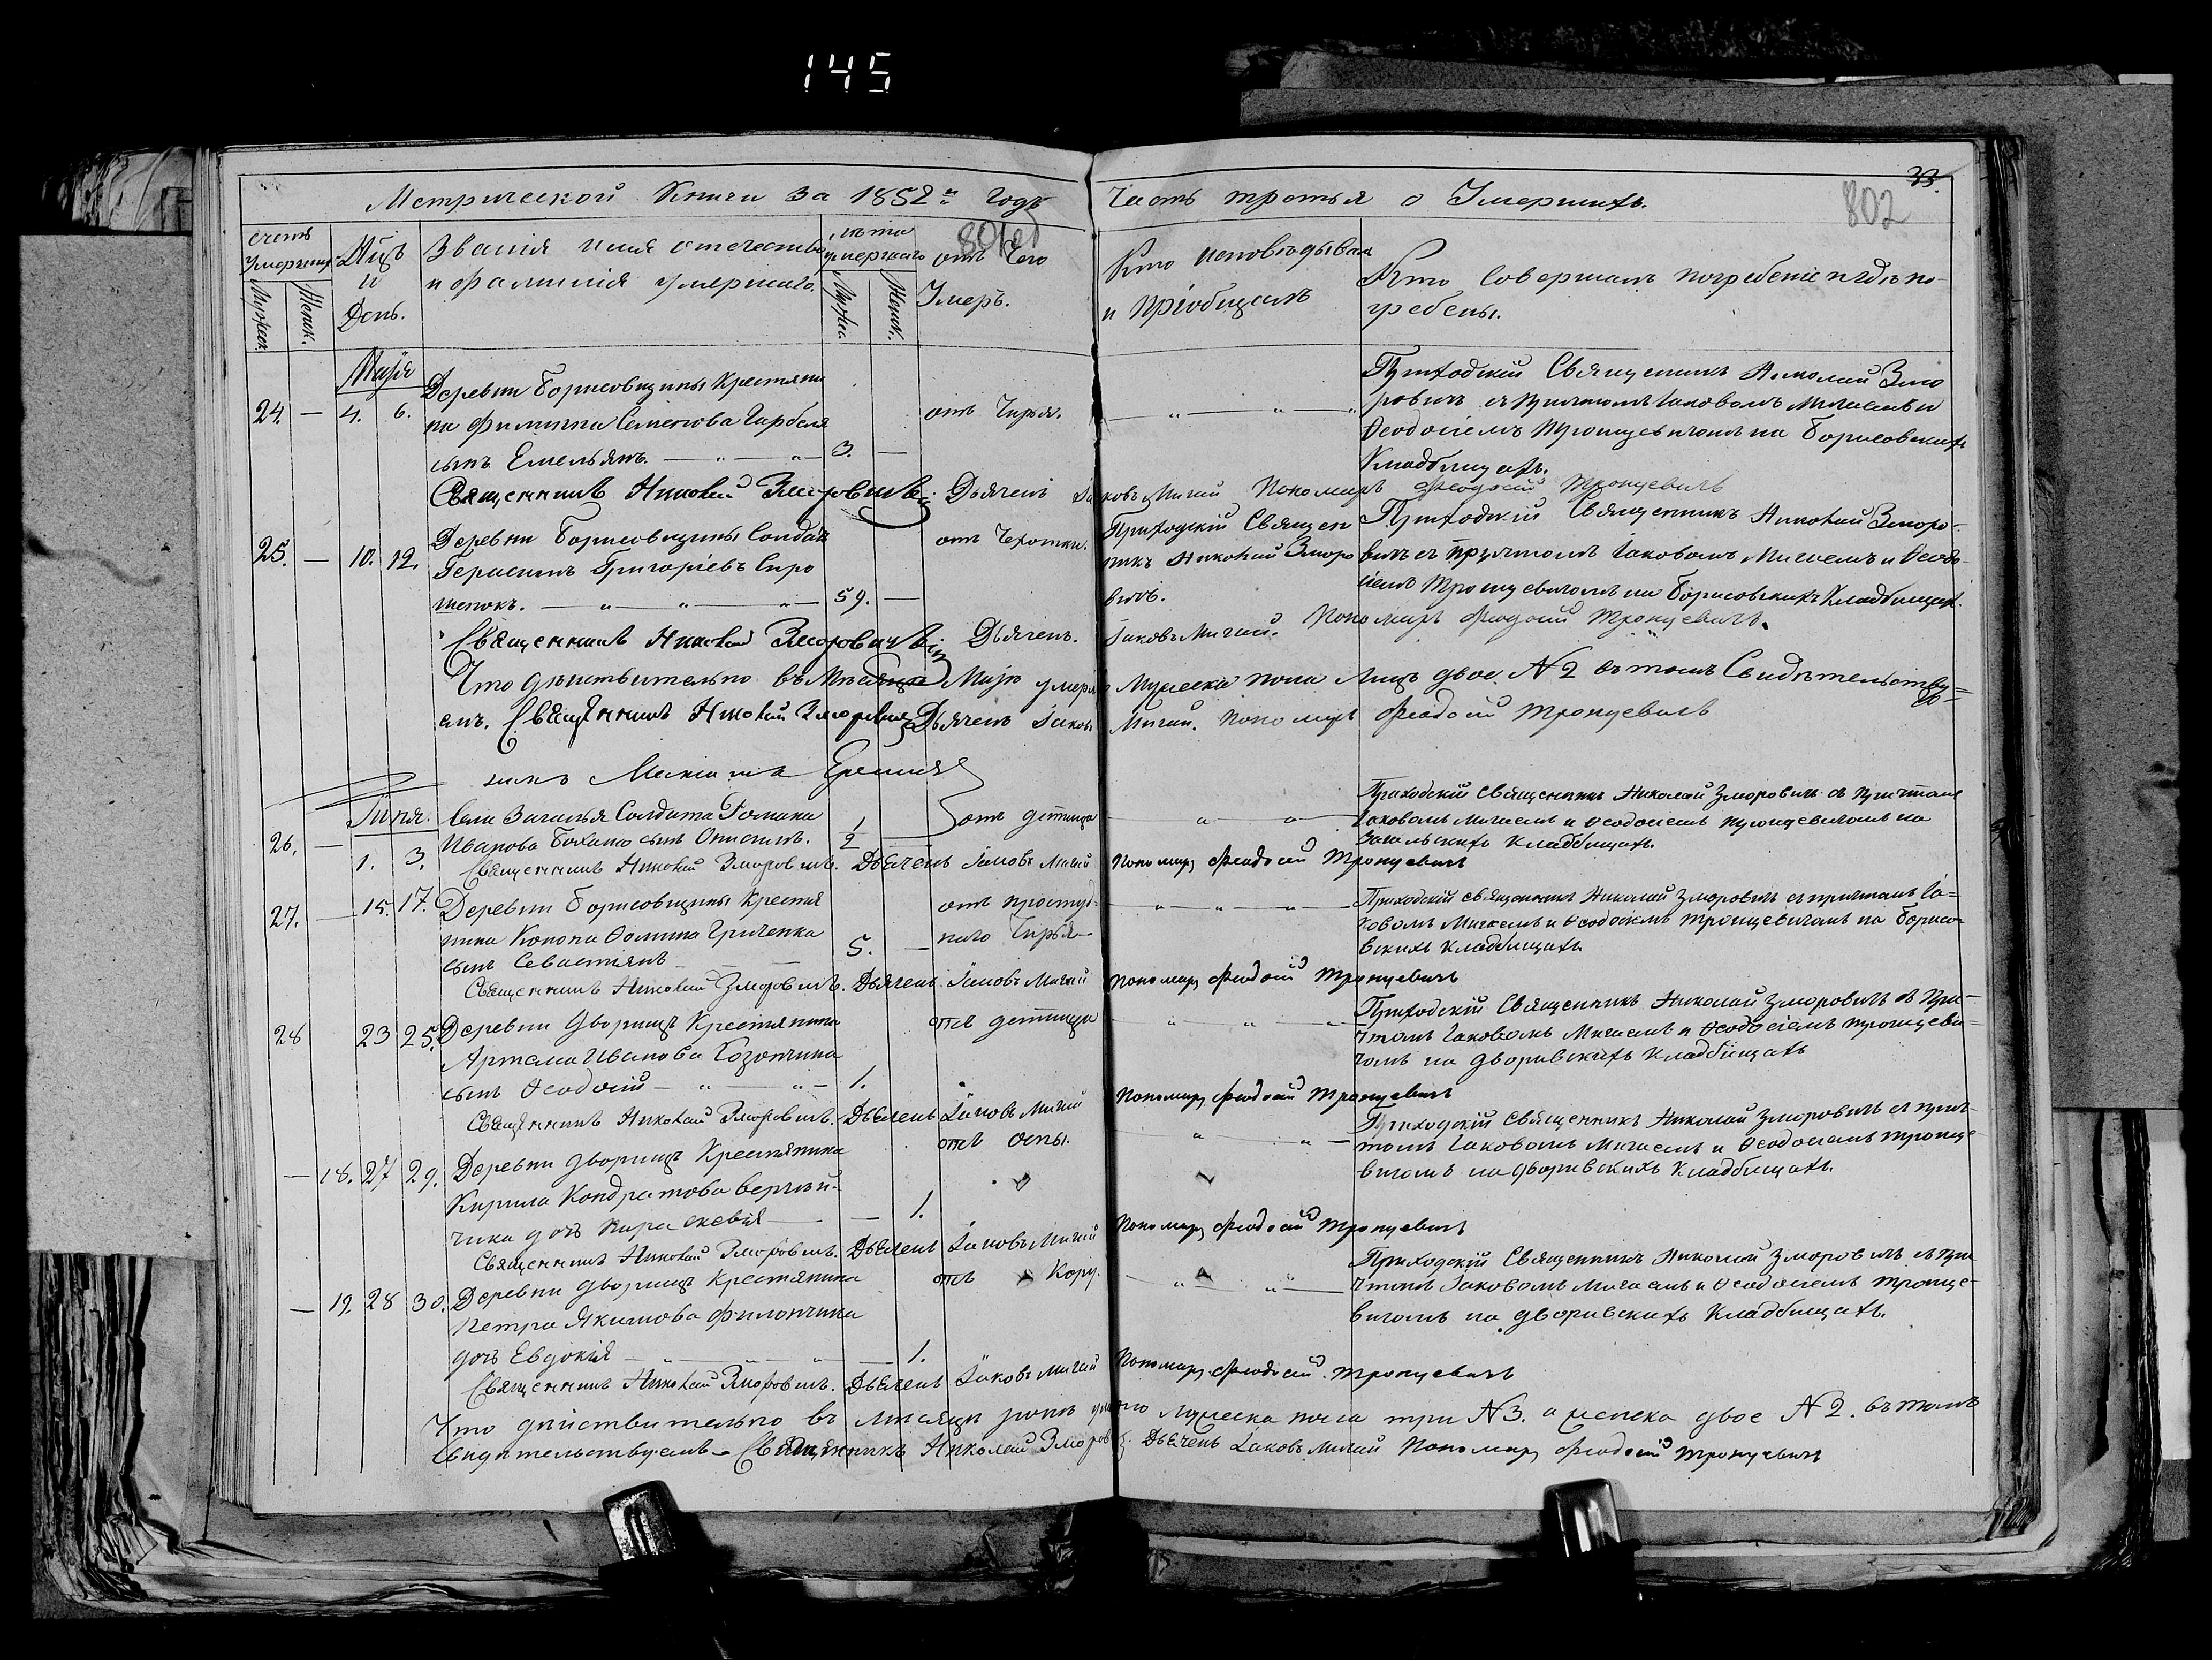 145
33.
802
Метрической Книги за 1852й Годъ Часть третья о Умершихъ.
счетъ Умершихъ
Мужес.
Женск.
Мцъ и День.
Званія имя отечество и фамилія умершаго.
лѣта умершаго
Мужес.
Женск.
отъ чего Умеръ.
Кто исповѣдывалъ и пріобщалъ
Кто Совершалъ погребеніе и гдѣ погребены.
Маія
24. — 4. 6.
Деревни Борисовщины Крестяни
на Филиппа Семенова Гарбаля
сынъ Емельянъ. — 3. —
отъ Чирья.
Приходскій Священникъ Николай Змо
ровичъ съ причтомъ Іаковомъ Мигаемъ и
Ѳеодосіемъ Троцевичомъ на Борисовскихъ
Кладбищахъ.
Священникъ Николай Зморовичъ. Дьячекъ Іаковъ Мигай Пономаръ Феодосій Троцевичъ
25. — 10. 12.
Деревни Борисовщины Солдатъ
Герасимъ Григоріевъ Сиро
тенокъ. — 59. —
отъ Чехотки.
Приходскій Священ
никъ Николай Зморо
вичъ.
Приходскій Священникъ Николай Зморо-
вичъ съ причтомъ Іаковомъ Мигаемъ и Ѳеодо-
сіемъ Троцевичомъ на Борисовскихъ Кладбищах.
Священникъ Николай Зморовичъ. Дьячекъ. Іаковъ Мигай. Пономаръ Феодосій Троцевичъ.
Что дѣйствительно въ Мѣсяцѣ Маію умерло Мужеска пола Лицъ двое N 2 въ томъ Свидѣтельству=
емъ. Священникъ Николай Зморовичъ Дьячекъ Іаковъ Мигай. Пономаръ Феодосій Троцевичъ
Іюня.
26. — 1. 3.
Села Загалья Солдата Романа
Иванова Бохана сынъ Онисимъ. 1/2 —
отъ детинца
Приходскій Священникъ Николай Зморовичъ съ Причтомъ
Іаковомъ Мигаемъ и Ѳеодосіемъ Троцевичомъ на
Загальскихъ Кладбищахъ.
Священникъ Николай Зморовичъ. Дьячекъ Іаковъ Мигай Пономаръ Феодосій Троцевичъ
27. — 15. 17.
Деревни Борисовщины Крестья
нина Конона Фомина Гриченка
сынъ Севастіянъ 5. —
отъ простуд-
наго Чирья
Приходскій Священникъ Николай Зморовичъ съ причтомъ Іа=
ковомъ Мигаемъ и Ѳеодосіемъ Троцевичомъ на Борисо-
вскихъ Кладбищахъ
Священникъ Николай Зморовичъ. Дьячекъ Іаковъ Мигай Пономаръ Феодосій Троцевичъ
28 23 25.
Деревни Дворищъ Крестянина
Артема Иванова Козончика
сынъ Ѳеодосій — 1.
отъ детинца
Приходскій Священникъ Николай Зморовичъ съ При-
чтомъ Іаковомъ Мигаемъ и Ѳеодосіемъ Троцеви-
чомъ на Дворивскихъ Кладбищахъ
Священникъ Николай Зморовичъ. Дьячекъ Іаковъ Мигай Пономаръ Феодосій Троцевичъ
— 18. 27 29.
Деревни Дворищъ Крестянина
Кирила Кондратова Верчей-
чика дочь Параскевія — 1.
отъ оспы.
Приходскій Священникъ Николай Зморовичъ съ прич-
томъ Іаковомъ Мигаемъ и Ѳеодосіемъ Троце-
вичомъ на Дворивскихъ Кладбищахъ.
Священникъ Николай Зморовичъ. Дьячекъ Іаковъ Мигай Пономаръ Феодосій Троцевичъ
— 19. 28 30.
Деревни Дворищъ Крестянина
Петра Якимова Филончика
дочь Евдокія — 1.
отъ Кору.
Приходскій Священникъ Николай Зморовичъ съ при
чтомъ Іаковомъ Мигаемъ и Ѳеодосіемъ Троце-
вичомъ на Дворивскихъ Кладбищахъ.
Священникъ Николай Зморовичъ. Дьячекъ Іаковъ Мигай Пономаръ Феодосій Троцевичъ
Что дѣйствительно въ мѣсяцѣ Іюнѣ умерло мужеска пола три N 3. а женска двое N 2. въ томъ
Свидѣтельствуемъ Священникъ Николай Зморовичъ. Дьячекъ Іаковъ Мигай Пономаръ Феодосій Троцевичъ